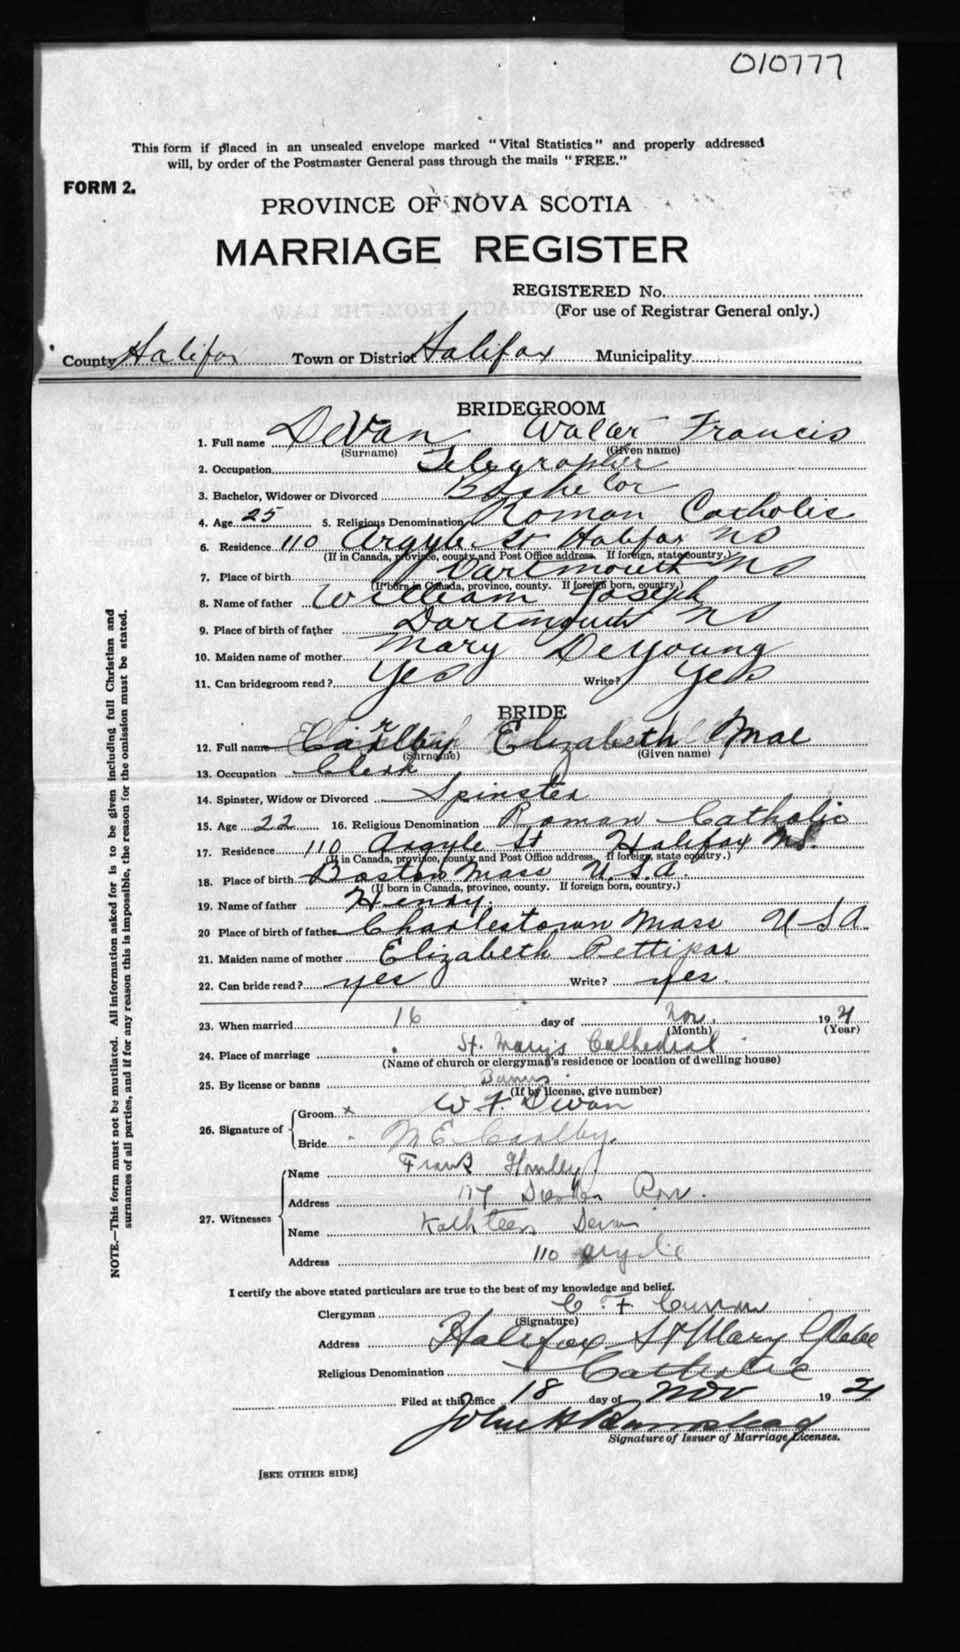 010777
This form if placed in an unsealed envelope marked "Vital Statistics" and properly addressed
will, by order of the Postmaster General pass through the mails "FREE."
FORM 2.
PROVINCE OF NOVA SCOTIA
MARRIAGE REGISTER
REGISTERED No.
(For use of Registrar General only.)
County Halifax Town or District Halifax Municipality
BRIDEGROOM
1. Full name DeVan Walar Francis
(Surname) (Given name)
2. Occupation Telegrapher
3. Bachelor, Widower or Divorced Bachelor
4. Age 25 5. Religious Denomination Roman Catholic
6. Residence 110 Argyle St Halifax NS
(If in Canada, province, county and Post Office address. If foreign, state country.)
7. Place of birth Dartmouth NS
(If born in Canada, province, county. If foreign born, country.)
8. Name of father William Joseph
9. Place of birth of father Dartmouth NS
10. Maiden name of mother Mary DeYoung
11. Can bridegroom read? Yes Write? Yes
BRIDE
12. Full name Elizabeth Mae
(Surname) (Given name)
13. Occupation Clerk
14. Spinster, Widow or Divorced Spinster
15. Age 22 16. Religious Denomination Roman Catholic
17. Residence 110 Argyle St Halifax NS.
(If in Canada, province, county and Post Office address. If foreign, state country.)
18. Place of birth Boston Mass U.S.A.
(If born in Canada, province, county. If foreign born, country.)
19. Name of father Henry.
20 Place of birth of father Charlestown Mass USA.
21. Maiden name of mother Elizabeth Pettipas
22. Can bride read? yes Write? yes.
23. When married 16 day of Nov. 192
(Month) (Year)
24. Place of marriage St. Mary's Cathedral
(Name of church or clergyman's residence or location of dwelling house)
25. By license or banns Banns
(If by license, give number)
26. Signature of Groom x W F. Devan
Bride M E
27. Witnesses Name Frank
Address Dresden Row.
Name Kathleen Devan
Address 110 Argyle
I certify the above stated particulars are true to the best of my knowledge and belief.
Clergyman C. F Curran
(Signature)
Address Halifax St Mary Glebe
Religious Denomination Catholic
Filed at this office 18 day of Nov 192
Signature of Issuer of Marriage Licenses.
[SEE OTHER SIDE]
NOTE.—This form must not be mutilated. All information asked for is to be given including full Christian and
surnames of all parties, and if for any reason this is impossible, the reason for the omission must be stated.